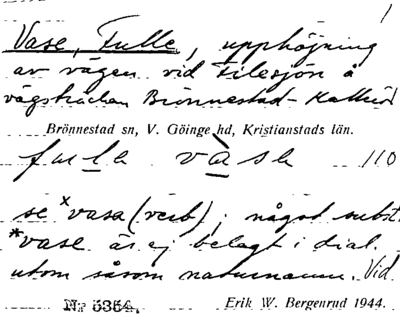 1
Vase, Fulle, upphöjning
av vägen vid Filesjön å
vägsträckan Brönnestad-
Brönnestad sn, V. Göinge hd, Kristianstads län.
fula vàsa 110
se ˣvasa (verb); något subst.
*vase är ej belagt i dial.
utom såsom naturnamn. Vid.
Nr 5354. Erik W. Bergenrud 1944.